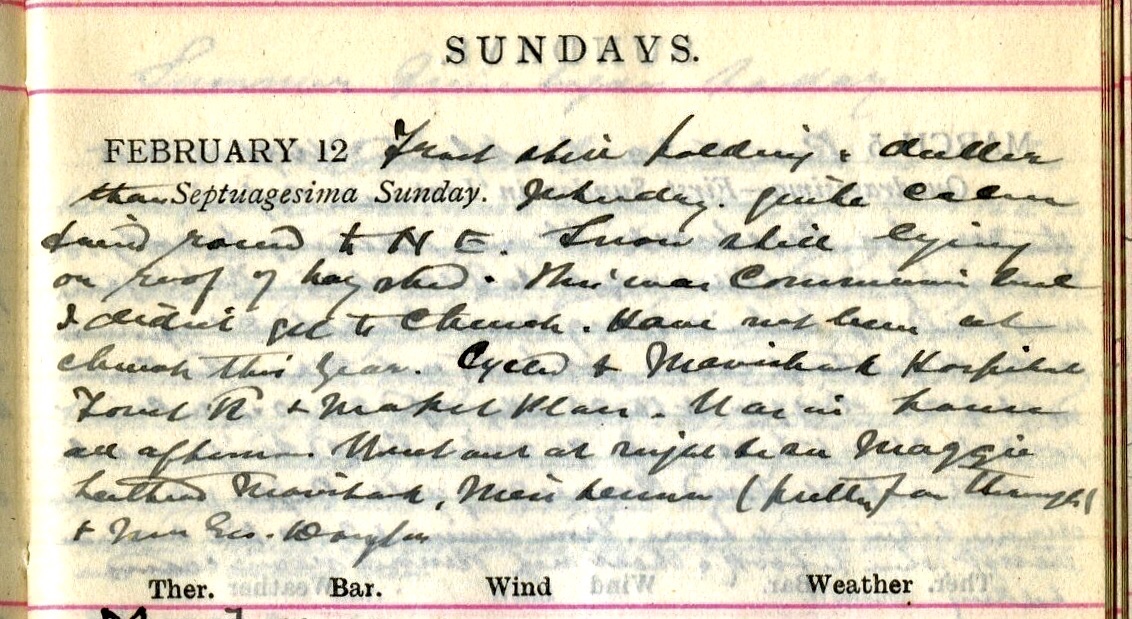 SUNDAYS.
FEBRUARY 12 Frost still holding & duller
than Septuagesima Sunday. yesterday. quite calm
wind round to N E. Snow still lying
on roof of hay shed. This was Communion but
I didn't get to Church. Have not been at
church this year. Cycled to Mavisbank Hospital
Forest Rd & Market Place. Was in house
all afternoon. Went out at night to see Maggie
Mavisbank, Miss (pretty far through)
& Mrs Geo.
Ther. Bar. Wind Weather